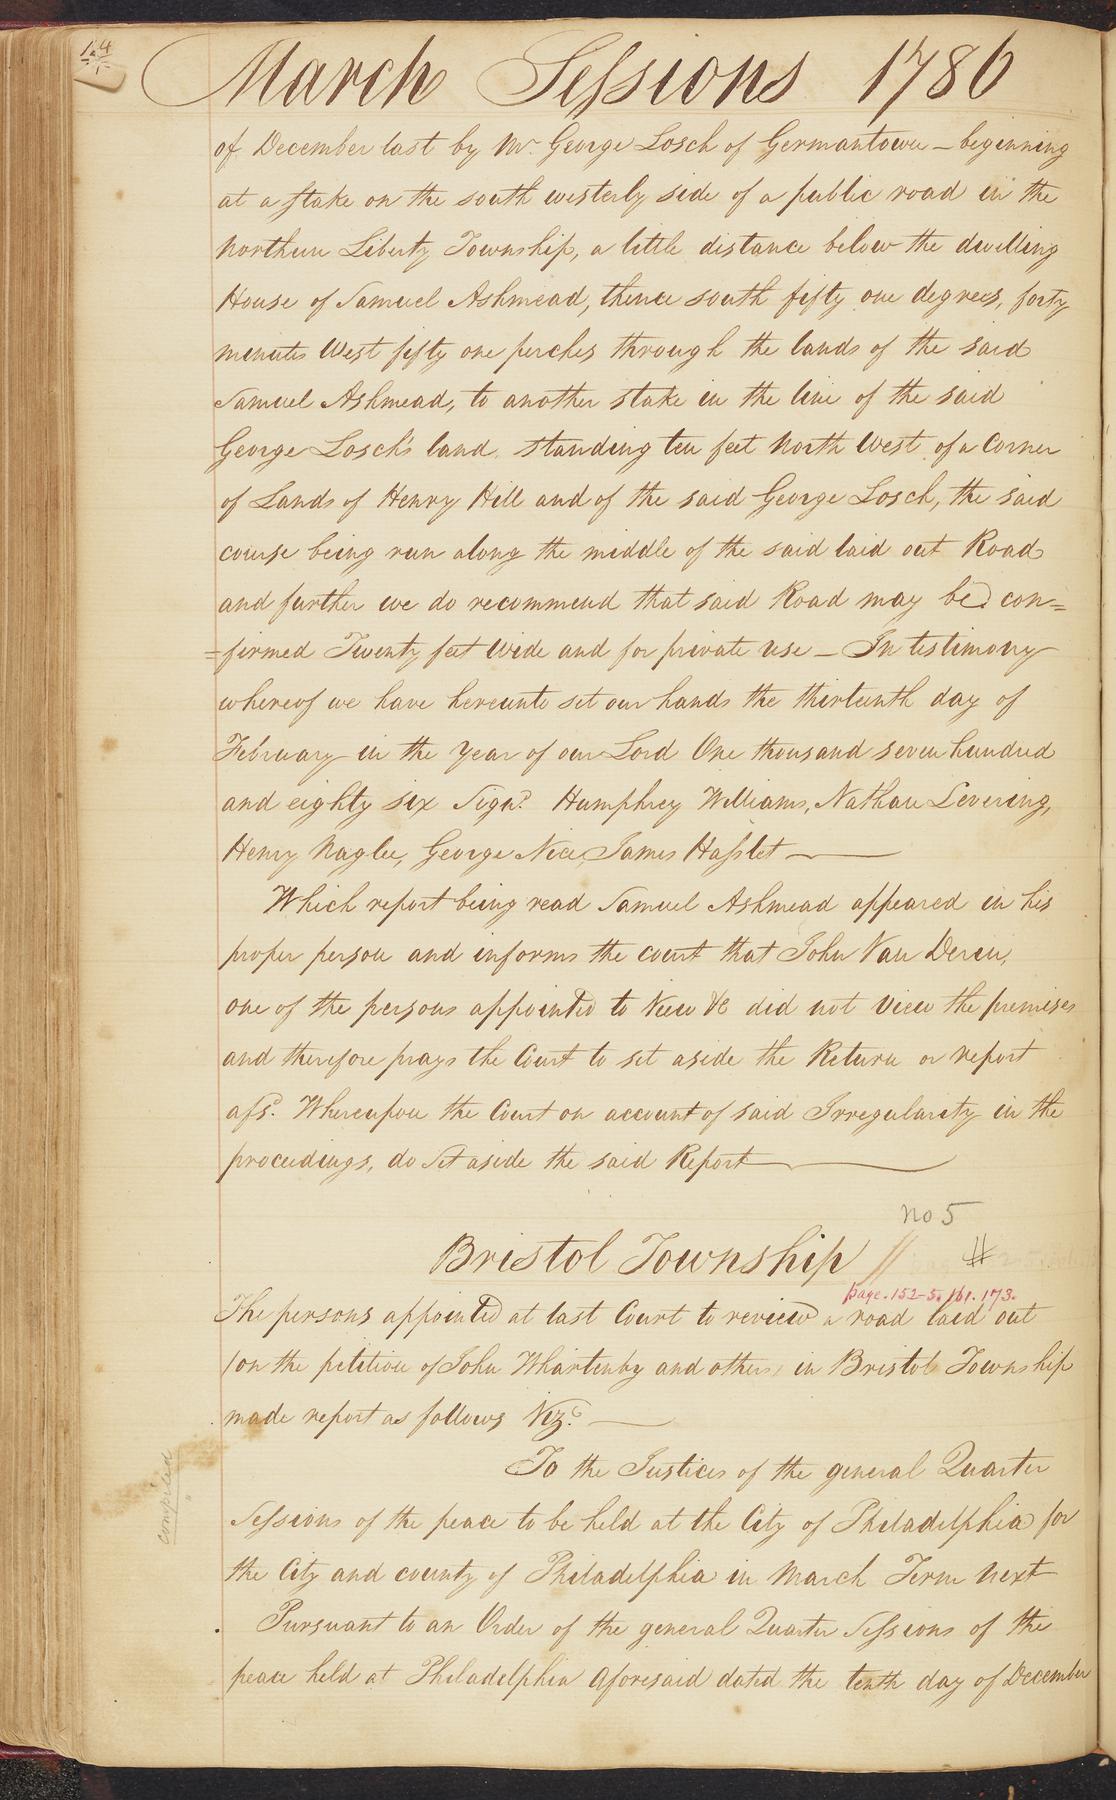 March Sessions 1786
of December last by Mr. George Losch of Germantown – beginning
at a stake on the south westerly side of a public road in the
Northern Liberty Township, a little distance below the dwelling
House of Samuel Ashmead, thence south fifty one degrees, forty
minutes West fifty one perches through the lands of the said
Samuel Ashmead, to another stake in the line of the said
George Losch's land standing ten feet North West of a Corner
of Lands of Henry Hill and of the said George Losch, the said
course being run along the middle of the said laid out Road
and further we do recommend that said Road may be con=
=firmed Twenty feet Wide and for private use – In testimony
whereof we have hereunto set our hands the thirteenth day of
February in the Year of our Lord One thousand seven hundred
and eighty six Signd. Humphrey Williams, Nathan Levering,
Henry Naglee, George Nice, James Haslet
Which report being read Samuel Ashmead appeared in his
proper person and informs the court that John Van Deren,
one of the persons appointed to View &c did not view the premises
and therefore prays the Court to set aside the Return or report
afsd. Whereupon the Court on account of said Irregularity in the
proceedings, do Set aside the said Report
no 5
Bristol Township // #
page. 152-5. 161. 173.
The persons appointed at last Court to review a road laid out
(on the petition of John Whartenby and others) in Bristol Township
made report as follows Vizt.
To the Justices of the general Quarter
Sessions of the peace to be held at the City of Philadelphia for
the City and county of Philadelphia in March Term next
compiled
Pursuant to an Order of the general Quarter Sessions of the
peace held at Philadelphia aforesaid dated the tenth day of December